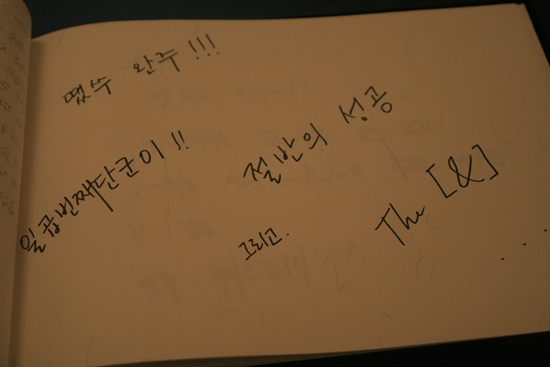 땠쑤 완주!!!
일곱번째단군이!!
절반의 성공
그리고.
The [&]
...